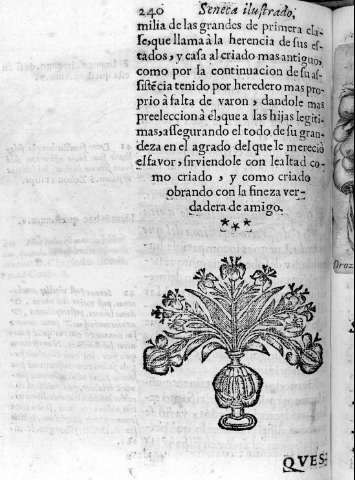 240 Seneca ilustrado,
milia de las grandes de primera cla-
se, que llama à la herencia de sus es-
tados, y casa al criado mas antiguo,
como por la continuacion de su as-
sistēcia tenido por heredero mas pro-
prio à falta de varon, dandole mas
preeleccion à èl, que a las hijas legiti-
mas, assegurando el todo de su gran-
deza en el agrado del que le mereciò
el favor, sirviendole con lealtad co-
mo criado, y como criado
obrando con la fineza ver-
dadera de amigo.
QVES-
Oroz